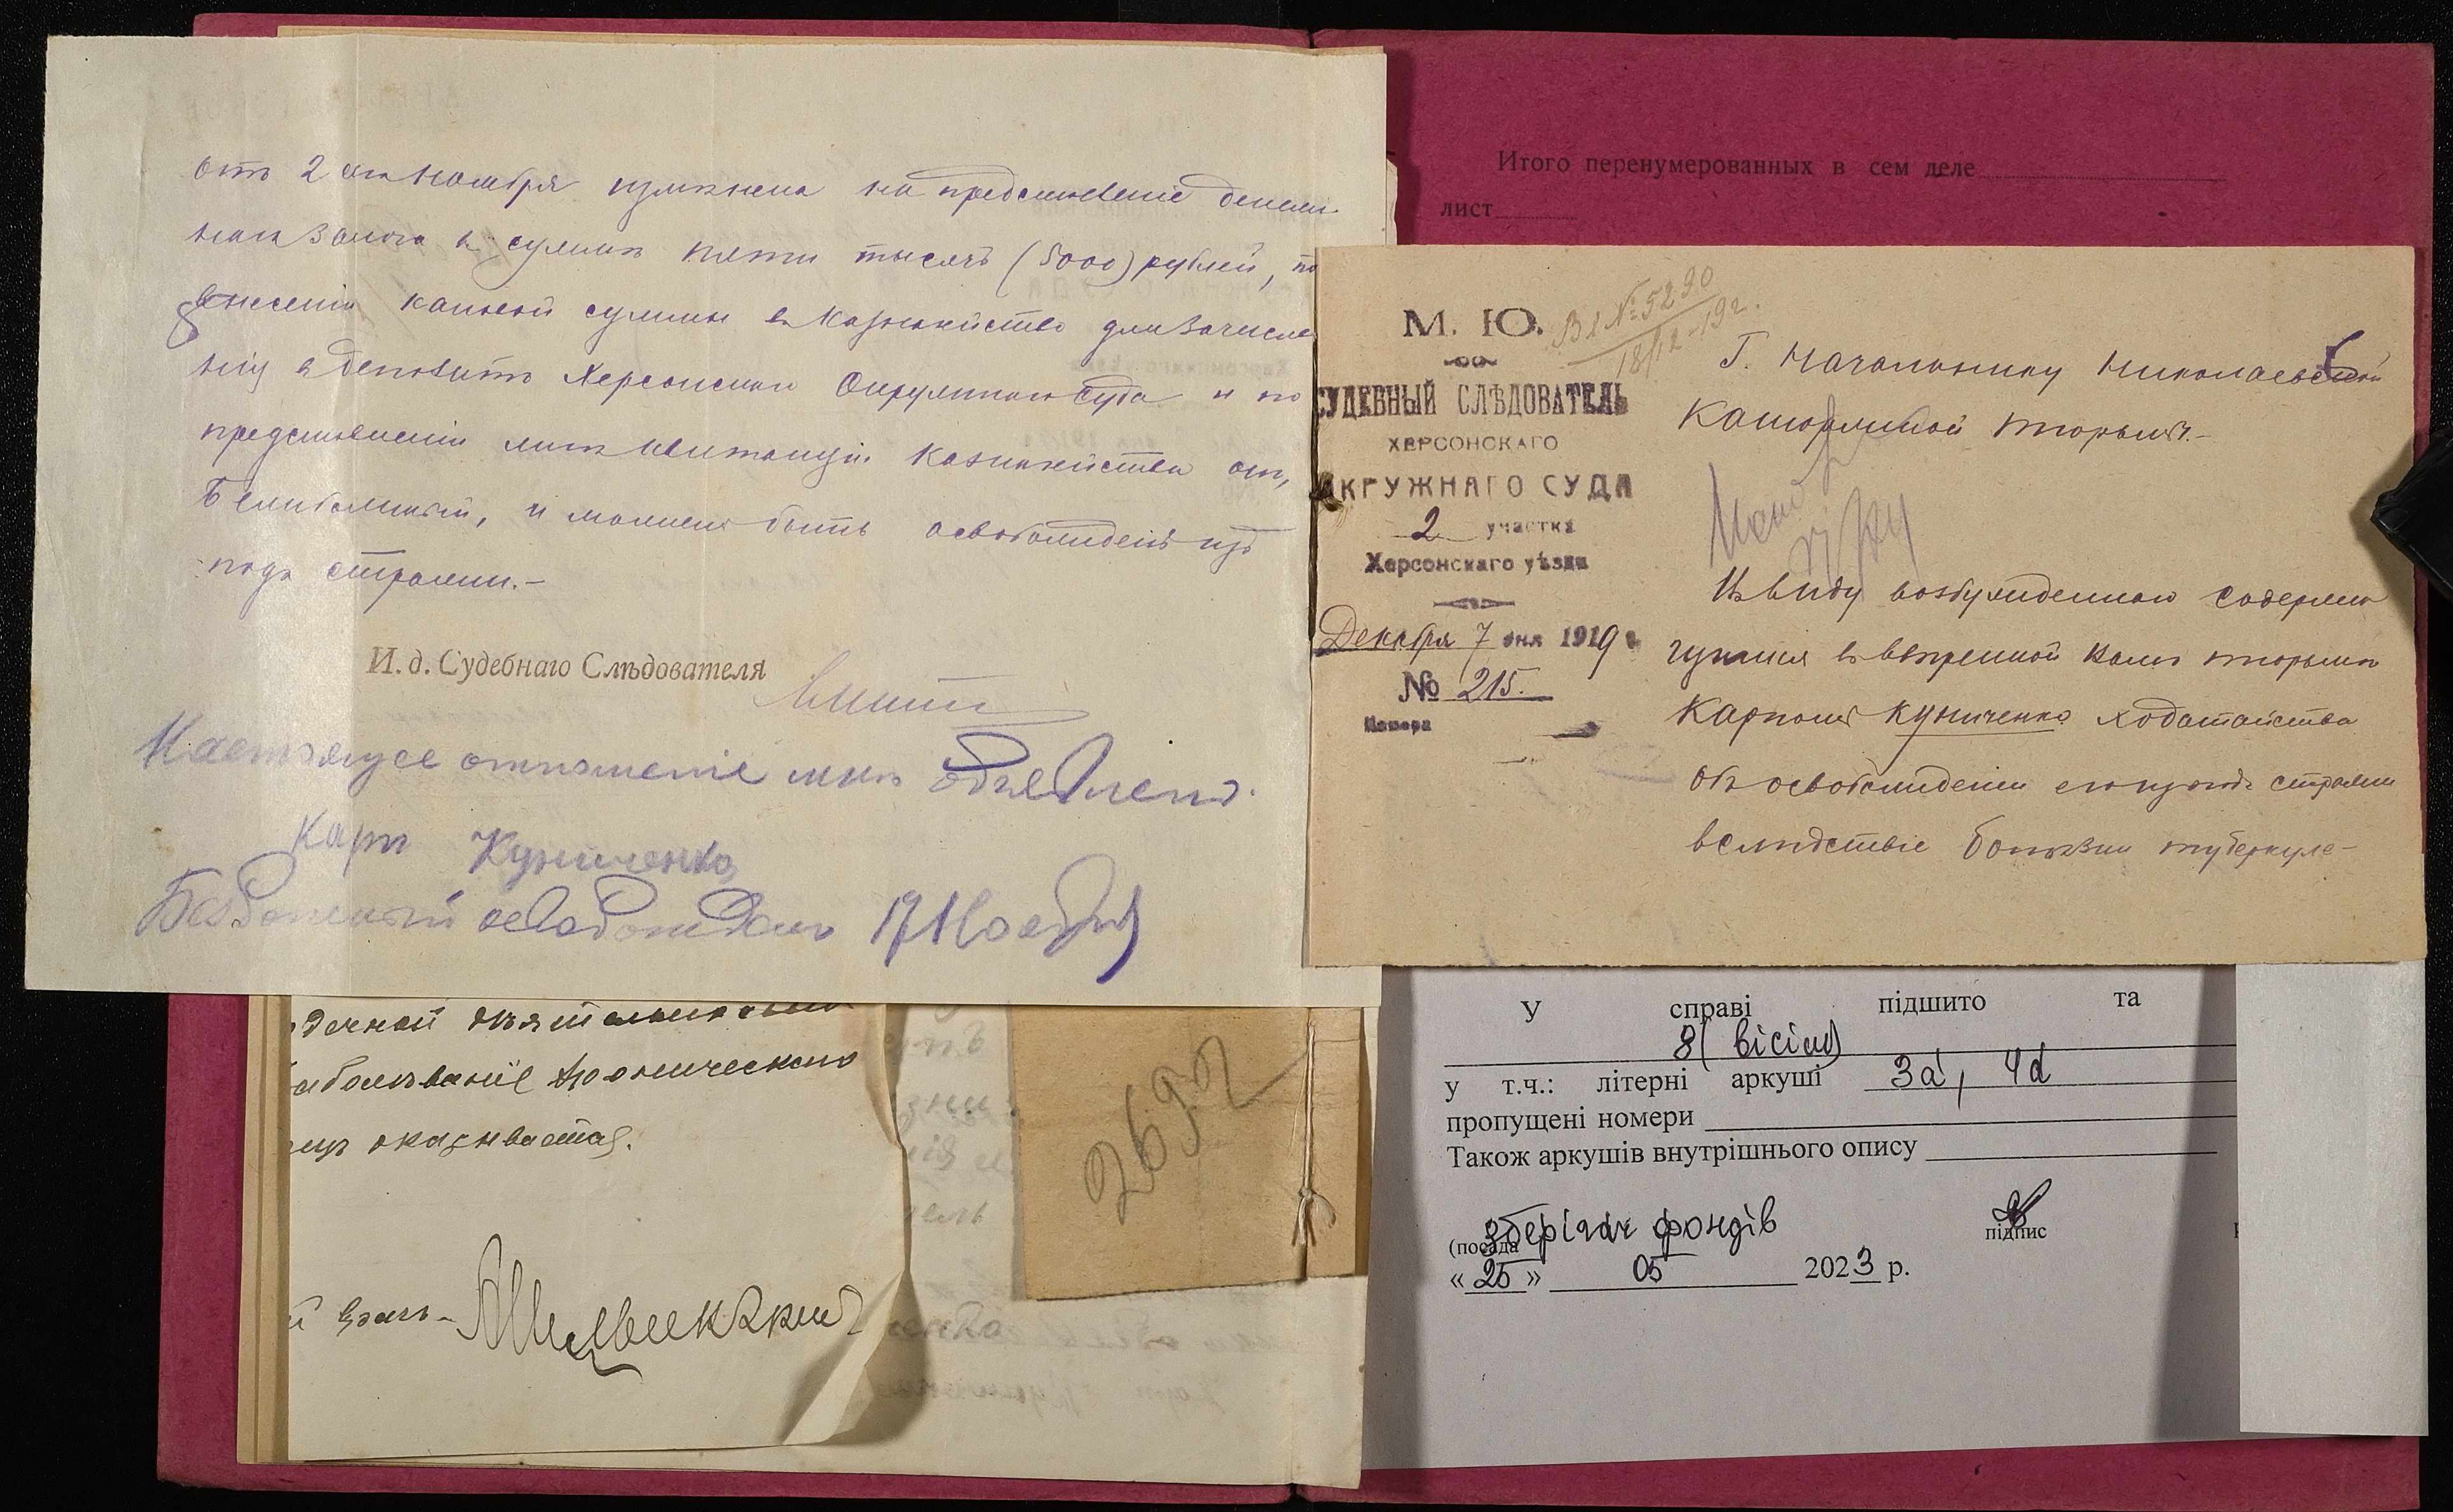 отъ 2 сего ноября измѣнена на представленіе денеж-
наго залога въ суммѣ пяти тысячъ (5000) рублей, по
внесеніи каковой суммы въ Казначейство для зачисле
нія въ депозитъ Херсонскаго Окружнаго Суда и по
представленіи мнѣ квитанціи Казначейства
и можетъ быть освобожденъ изъ
подъ стражи.-
И. д. Судебнаго Слѣдователя
Настоящее отношеніе мнѣ объявлено.
Карпъ Куниченко
освобожденъ 17 Ноября
дечной дѣятельности
заболѣваніе хроническаго
оказывается.
й врачъ -
2692
Итого перенумерованных в сем деле
лист
М. Ю.
Вх №5290
18/12-19г.
СУДЕБНЫЙ СЛѢДОВАТЕЛЬ
ХЕРСОНСКАГО
ОКРУЖНАГО СУДА
2 участка
Херсонскаго уѣзда
Декабря 7 дня 1919 г.
№ 215.
Г. Начальнику Николаевской
Каторжной тюрьмы.-
Въ виду возбужденнаго содержа
щимся въ ввѣренной Вамъ тюрьмѣ
Карпомъ Куниченко ходатайства
объ освобожденіи его изъ подъ стражи
вслѣдствіе болѣзни туберкуле-
У справі підшито та
8 (вісім)
у т.ч.: літерні аркуші 3а, 4а
пропущені номери
Також аркушів внутрішнього опису
Зберігач фондів
(посада підпис
« 25 » 05 2023 р.